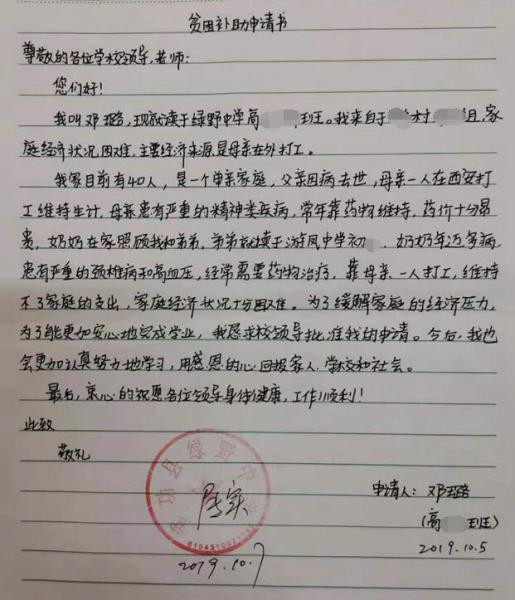 贫困补助申请书
尊敬的各位学校领导,老师:
您们好!
我叫邓璐,现就读于绿野中学高 班。我来自于 村 组,家
庭经济状况困难,主要经济来源是母亲在外打工。
我家目前有4口人,是一个单亲家庭,父亲因病去世,母亲一人在西安打
工维持生计,母亲患有严重的精神类疾病,常年靠药物维持,药价十分昂
贵,奶奶在家照顾我和弟弟,弟弟就读于游凤中学初 ,奶奶年迈多病,
患有严重的颈椎病和高血压,经常需要药物治疗,靠母亲一人打工,维持
不了家庭的支出,家庭经济状况十分困难。为了缓解家庭的经济压力,
为了能更加安心地完成学业,我恳求校领导批准我的申请。今后,我也
会更加认真努力地学习,用感恩的心回报家人、学校和社会。
最后,衷心的祝愿各位领导身体健康,工作顺利!
此致
敬礼
功县绿野中
属实
2019.10.7
申请人:邓璐
(高 班)
2019.10.5